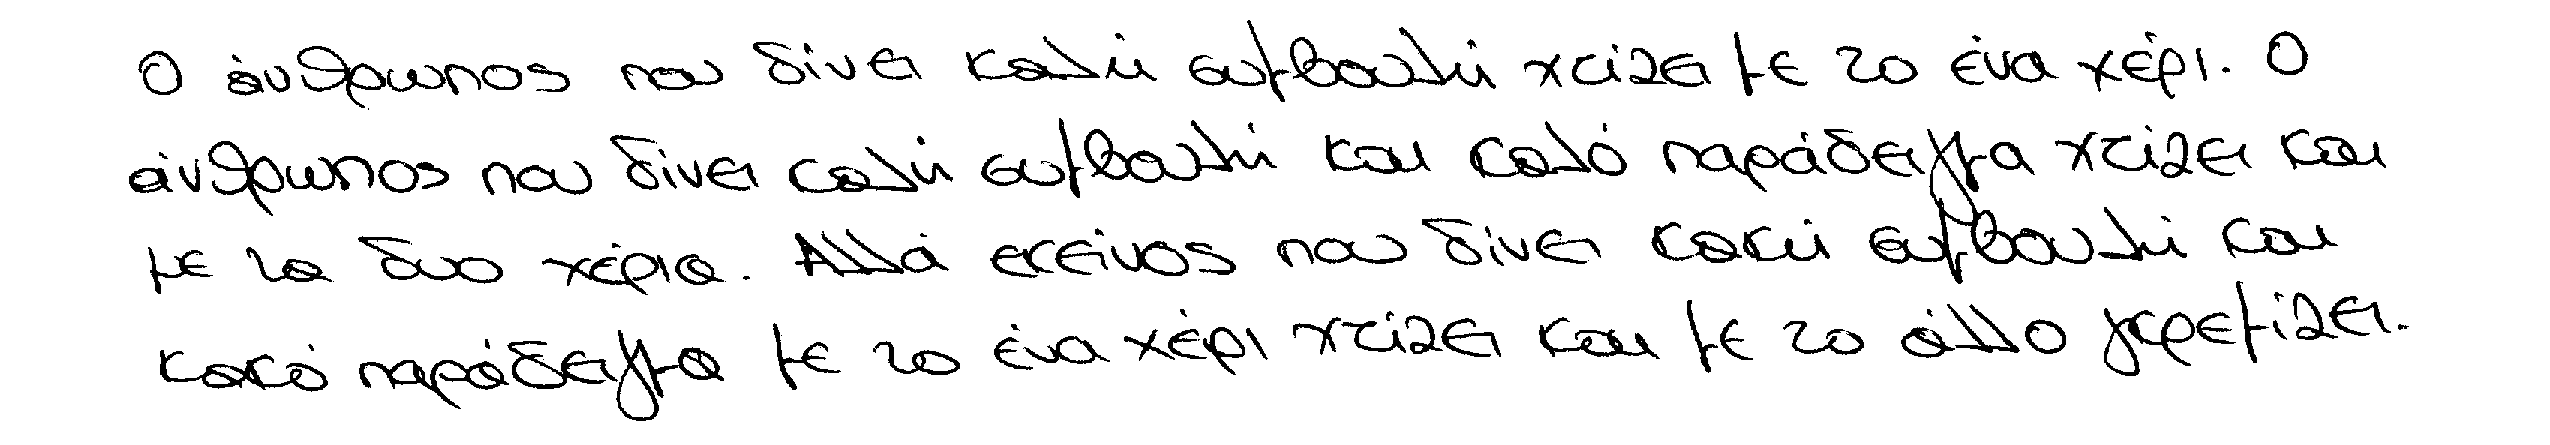 Ο άνθρωπος που δίνει καλή συμβουλή χτίζει με το ένα χέρι. Ο
άνθρωπος που δίνει καλή συμβουλή και καλό παράδειγμα χτίζει και
με τα δυο χέρια. Αλλά εκείνος που δίνει κακή συμβουλή και
κακό παράδειγμα με το ένα χέρι χτίζει και με το άλλο γκρεμίζει.